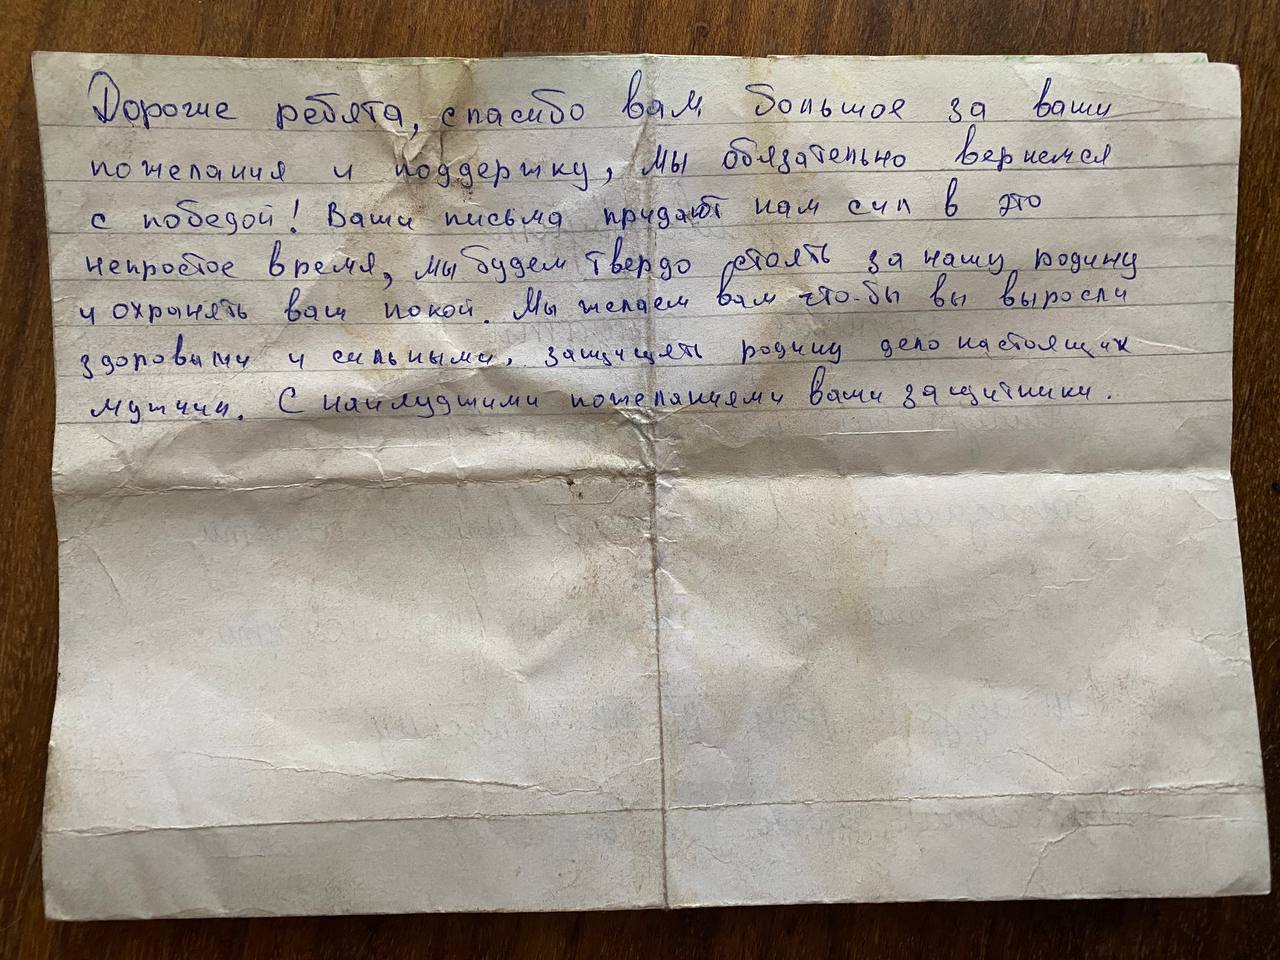 Дорогие ребята, спасибо вам большое за ваши
пожелания и поддержку, мы обязательно вернемся
с победой! Ваши письма придают нам сил в это
непростое время, мы будем твердо стоять за нашу родину
и охранять ваш покой. Мы желаем вам что-бы вы выросли
здоровыми и сильными, защищять родину дело настоящих
мущин. С наилудшими пожеланиями ваши защитники.